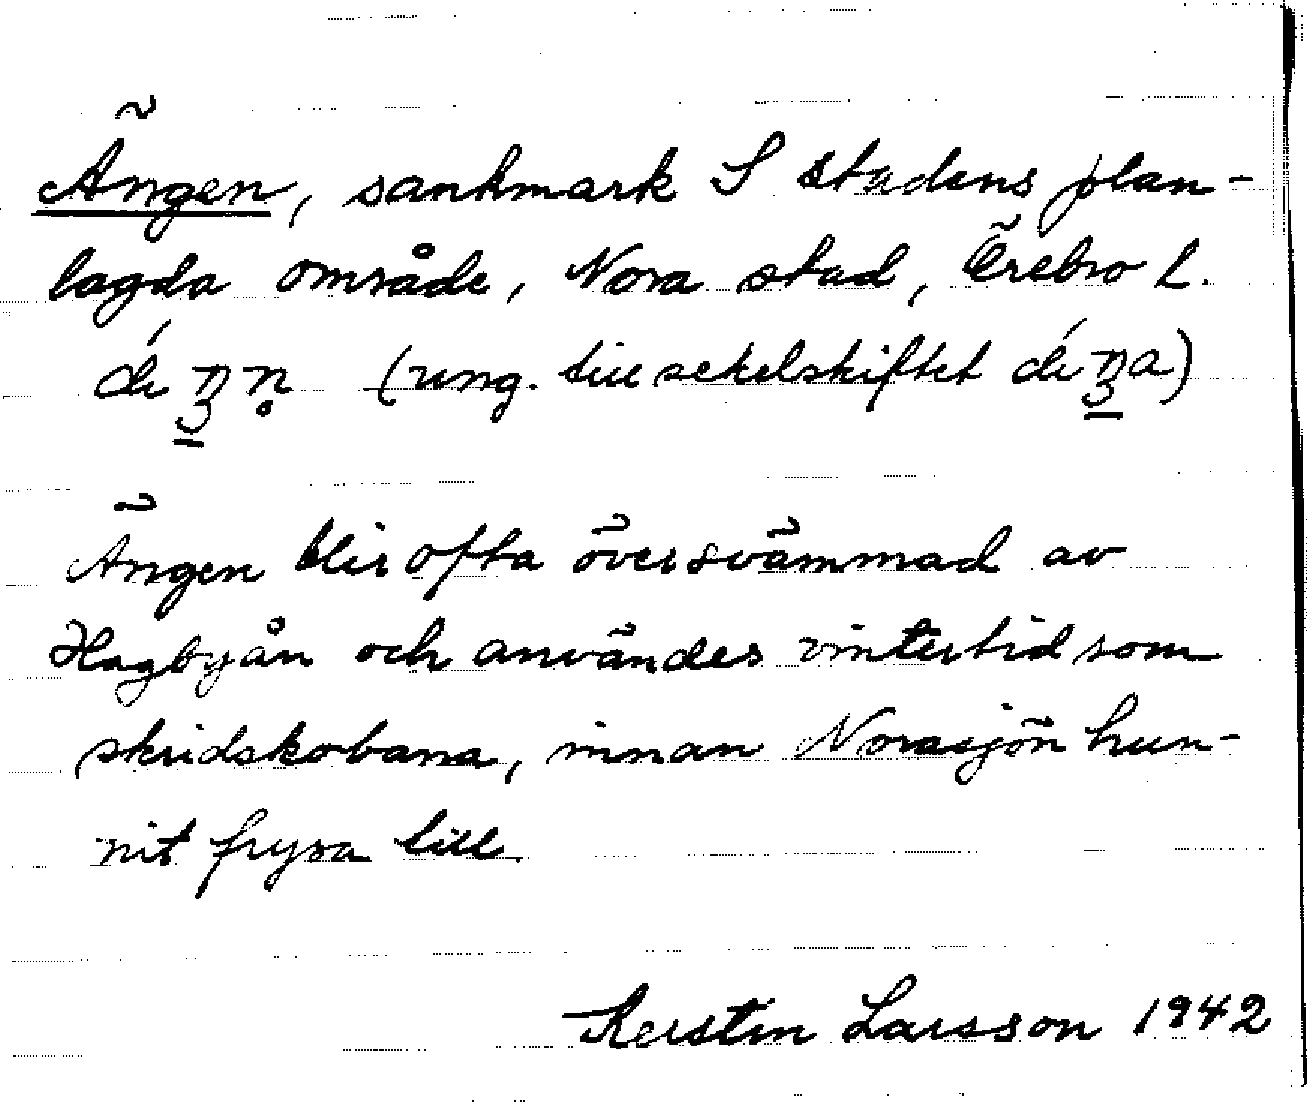 Ängen, sankmark S stadens plan-
lagda område, Nora stad, Örebro L.
(ung. till sekelskiftet
Ängen blir ofta översvämmad av
Hagbyån och användes vintertid som
skridskobana, innan Norasjön hun-
nit frysa till
Kerstin Larsson 1942